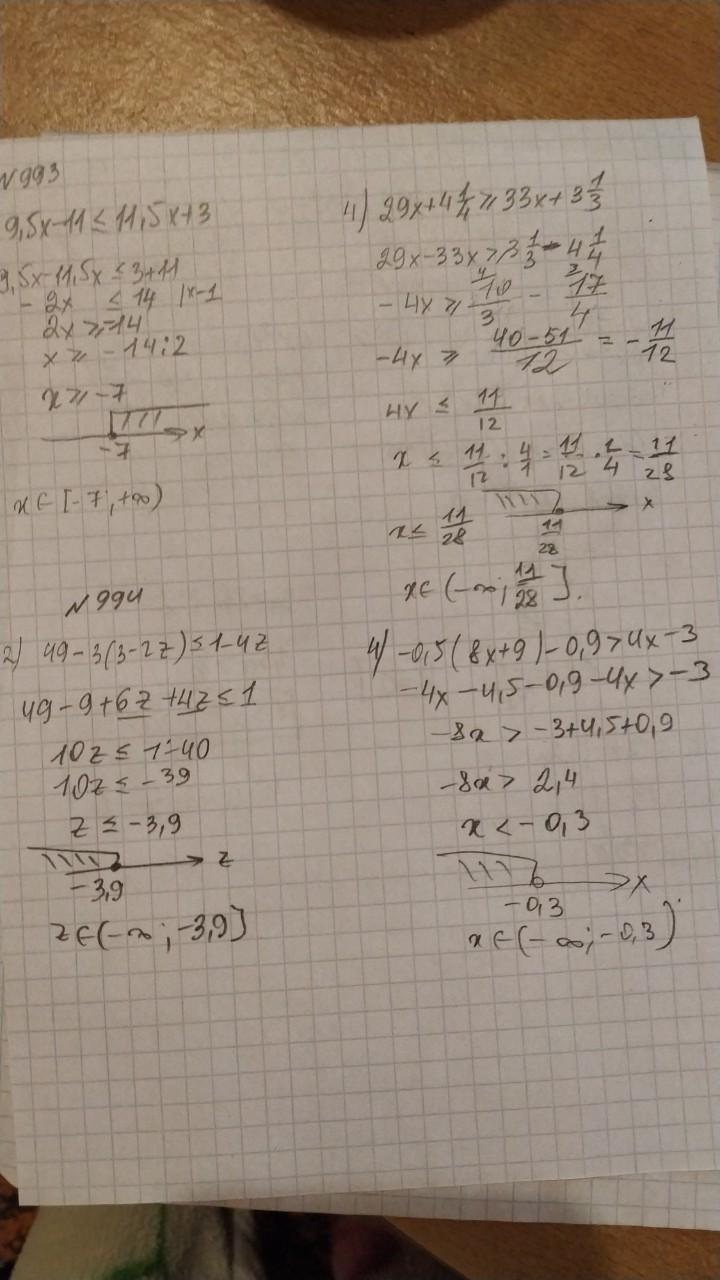 N993
9,5x-11≤11,5x+3
9,5x-11,5x≤3+11
-2x ≤ 14 |×-1
2x ≥ -14
x ≥ -14:2
x ≥ -7
-7 x
x∈[-7;+∞)
4) 29x+4 1/4 ≥ 33x+3 1/3
29x-33x ≥ 3 1/3 - 4 1/4
-4x ≥ 10/3 - 17/4
-4x ≥ (40-51)/12 = -11/12
4x ≤ 11/12
x ≤ 11/12 : 4/1 = 11/12 · 1/4 = 11/28
x ≤ 11/28
11/28 x
x∈(-∞; 11/28].
N994
2) 49-3(3-2z)≤1-4z
49-9+6z+4z≤1
10z ≤ 1-40
10z ≤ -39
z ≤ -3,9
-3,9 z
z∈(-∞; -3,9]
4) -0,5(8x+9)-0,9>4x-3
-4x-4,5-0,9-4x>-3
-8x > -3+4,5+0,9
-8x > 2,4
x < -0,3
-0,3 x
x∈(-∞; -0,3)